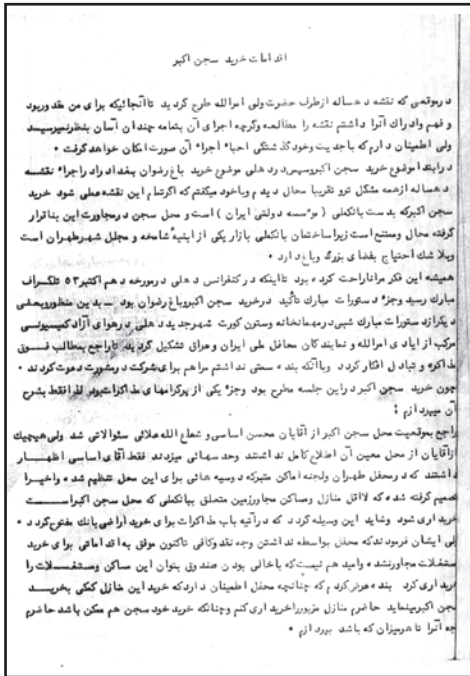 اقدامات خرید سجن اکبر
درموقعی که نقشه ده ساله ازطرف حضرت ولی امرالله طرح گردید تاآنجائیکه برای من مقدوربود
و فهم وادراك آنرا داشتم نقشه را مطالعه وگرچه اجرای آن بتمامه چندان آسان بنظرنمیرسید
ولی اطمینان دارم که باجدیت وخودگذشتگی احباء اجراء آن صورت امکان خواهدگرفت ۰
درابتدا موضوع خرید سجن اکبروسپس درهلی موضوع خرید باغ رضوان بغداد رادراجراء نقشه
ده ساله ازهمه مشکل ترو تقریبا محال دیدم وباخود میگفتم که اگرتمام این نقشه عملی شود خرید
سجن اکبرکه بدست بانکملی ( موسسه دولتی ایران ) است و محل سجن درمجاورت این بناقرار
گرفته محال وممتنع است زیراساختمان بانکملی بازار یکی از ابنیه شامخه و مجلل شهرطهران است
وبلا شك احتیاج بفضای بزرگ وباغ دارد ۰
همیشه این فکر مراناراحت کرده بود تااینکه درکنفرانس دهلی درمورخه دهم اکتبر ۵۳ تلگراف
مبارك رسید وجزء دستورات مبارك تأکید درخرید سجن اکبروباغ رضوان بود ــ بدین منظوروبعضی
دیگرازدستورات مبارك شبی درمهمانخانه وستون کورت شهرجدید دهلی درهوای آزاد کمیسیونی
مرکب از ایادی امرالله و نمایندگان محافل ملی ایران وعراق تشکیل گردید تاراجع بمطالب فــوق
مذاکره و تبادل افکارگردد وباآنکه بنده سمتی نداشتم مراهم برای شرکت درمشورت دعوت کردند ۰
چون خرید سجن اکبر دراین جلسه مطرح بود وجزء یکی از پرگرامهای مذاکرات بود لذا فقط بشرح
آن میپردازم :
راجع بموقعیت محل سجن اکبر از آقایان محسن اساسی و شعاع الله علائی سئوالاتی شد ولی هیچیك
ازآقایان از محل معین آن اطلاع کامل نداشتند وحدسهائی میزدند فقط آقای اساسی اظهـــار
داشتند که درمحفل طهران ولجنه اماکن متبرکه دوسیه هائی برای این محل تنظیم شده واخیـرا
تصمیم گرفته شده که لااقل منازل ومساکن مجاورزمین متعلق ببانکملی که محل سجن اکبراســـت
خریداری شود وشاید این وسیله گردد که درآتیه باب مذاکرات برای خرید اراضی بانك مفتوح گردد ۰
ولی ایشان فرمودندکه محفل بواسطه نداشتن وجه نقدوکافی تاکنون موفق به اقداماتی برای خرید
مستغلات مجاورنشده وامید هم نیست که باخالی بودن صندوق بتوان این مساکن ومستغلات را
خریداری کرد بنده عرض کردم که چنانچه محفل اطمینان داردکه خرید این منازل کمکی بخریــد
سجن اکبرمینماید حاضرم منازل مزبورراخریداری کنم وچنانکه خرید خود سجن هم ممکن باشد حاضرم
وجه آنرا تا هرمیزان که باشد بپردازم ۰